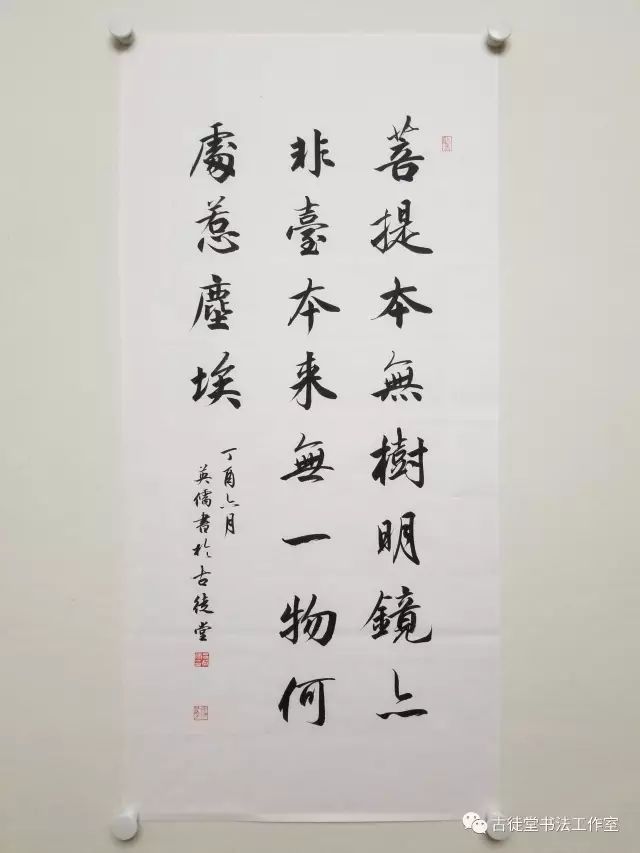 菩提本無樹明鏡亦
非臺本来無一物何
處惹塵埃
丁酉六月
英儒書於古徒堂
古徒堂书法工作室